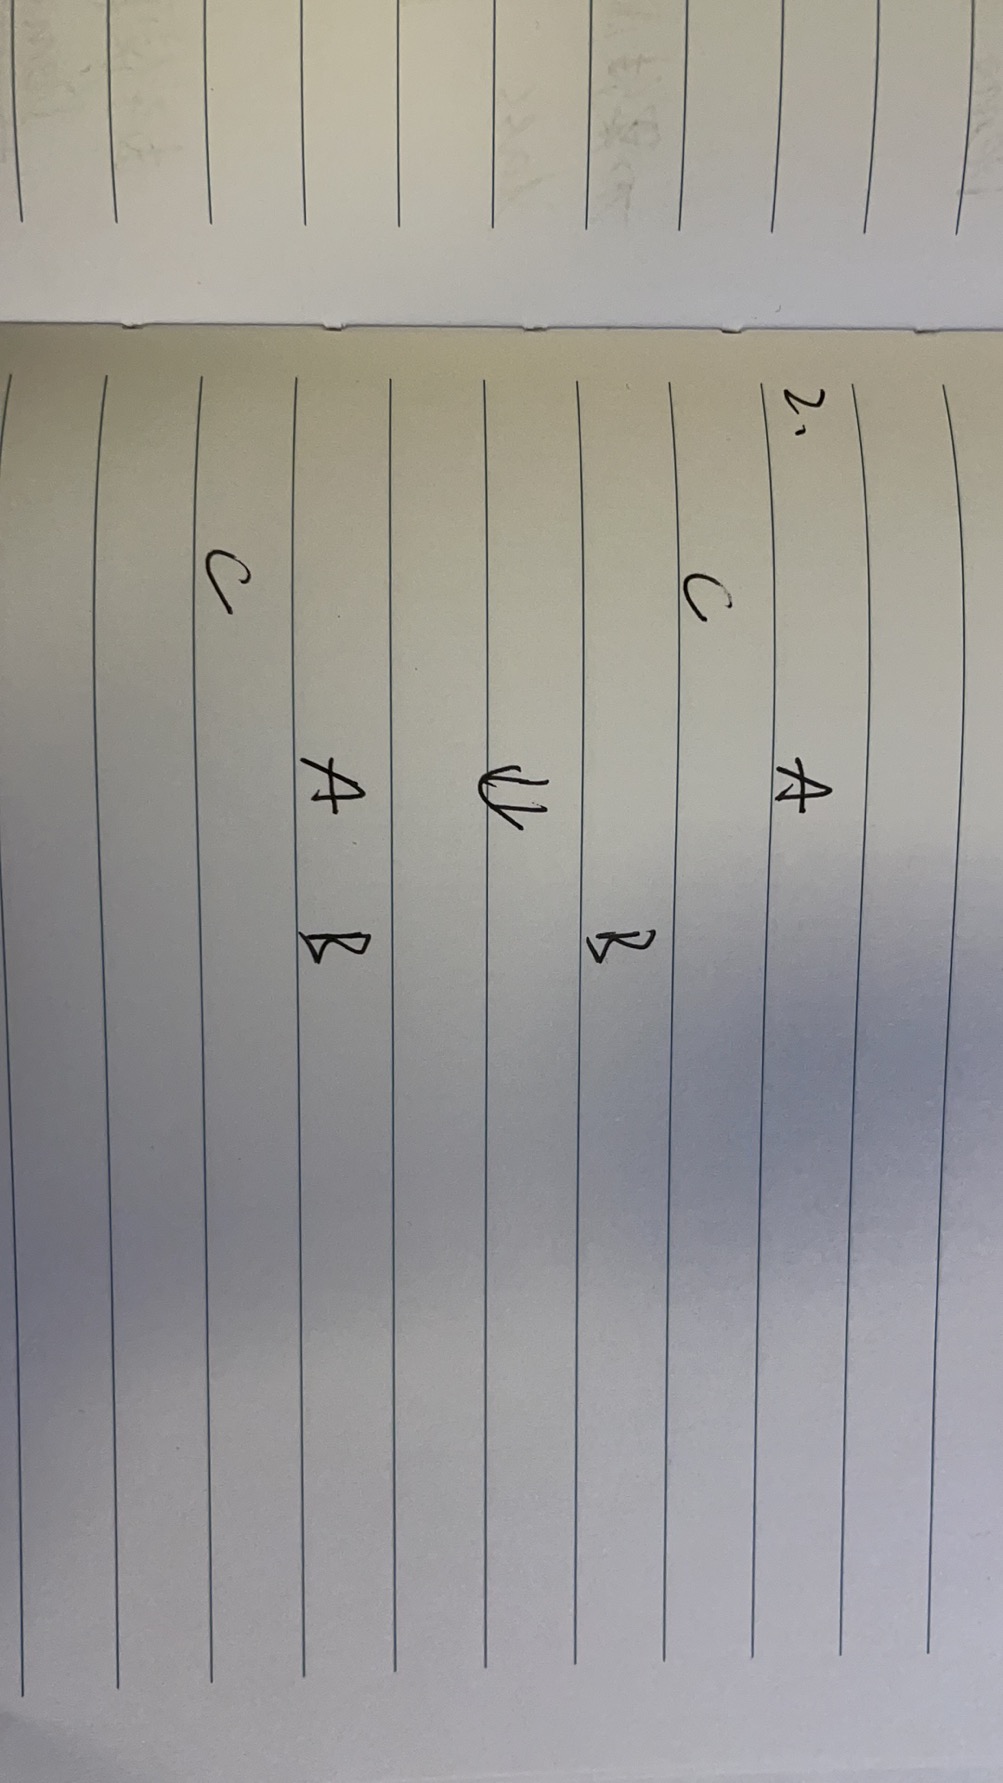 2. A
C
B
⇓
A B
C